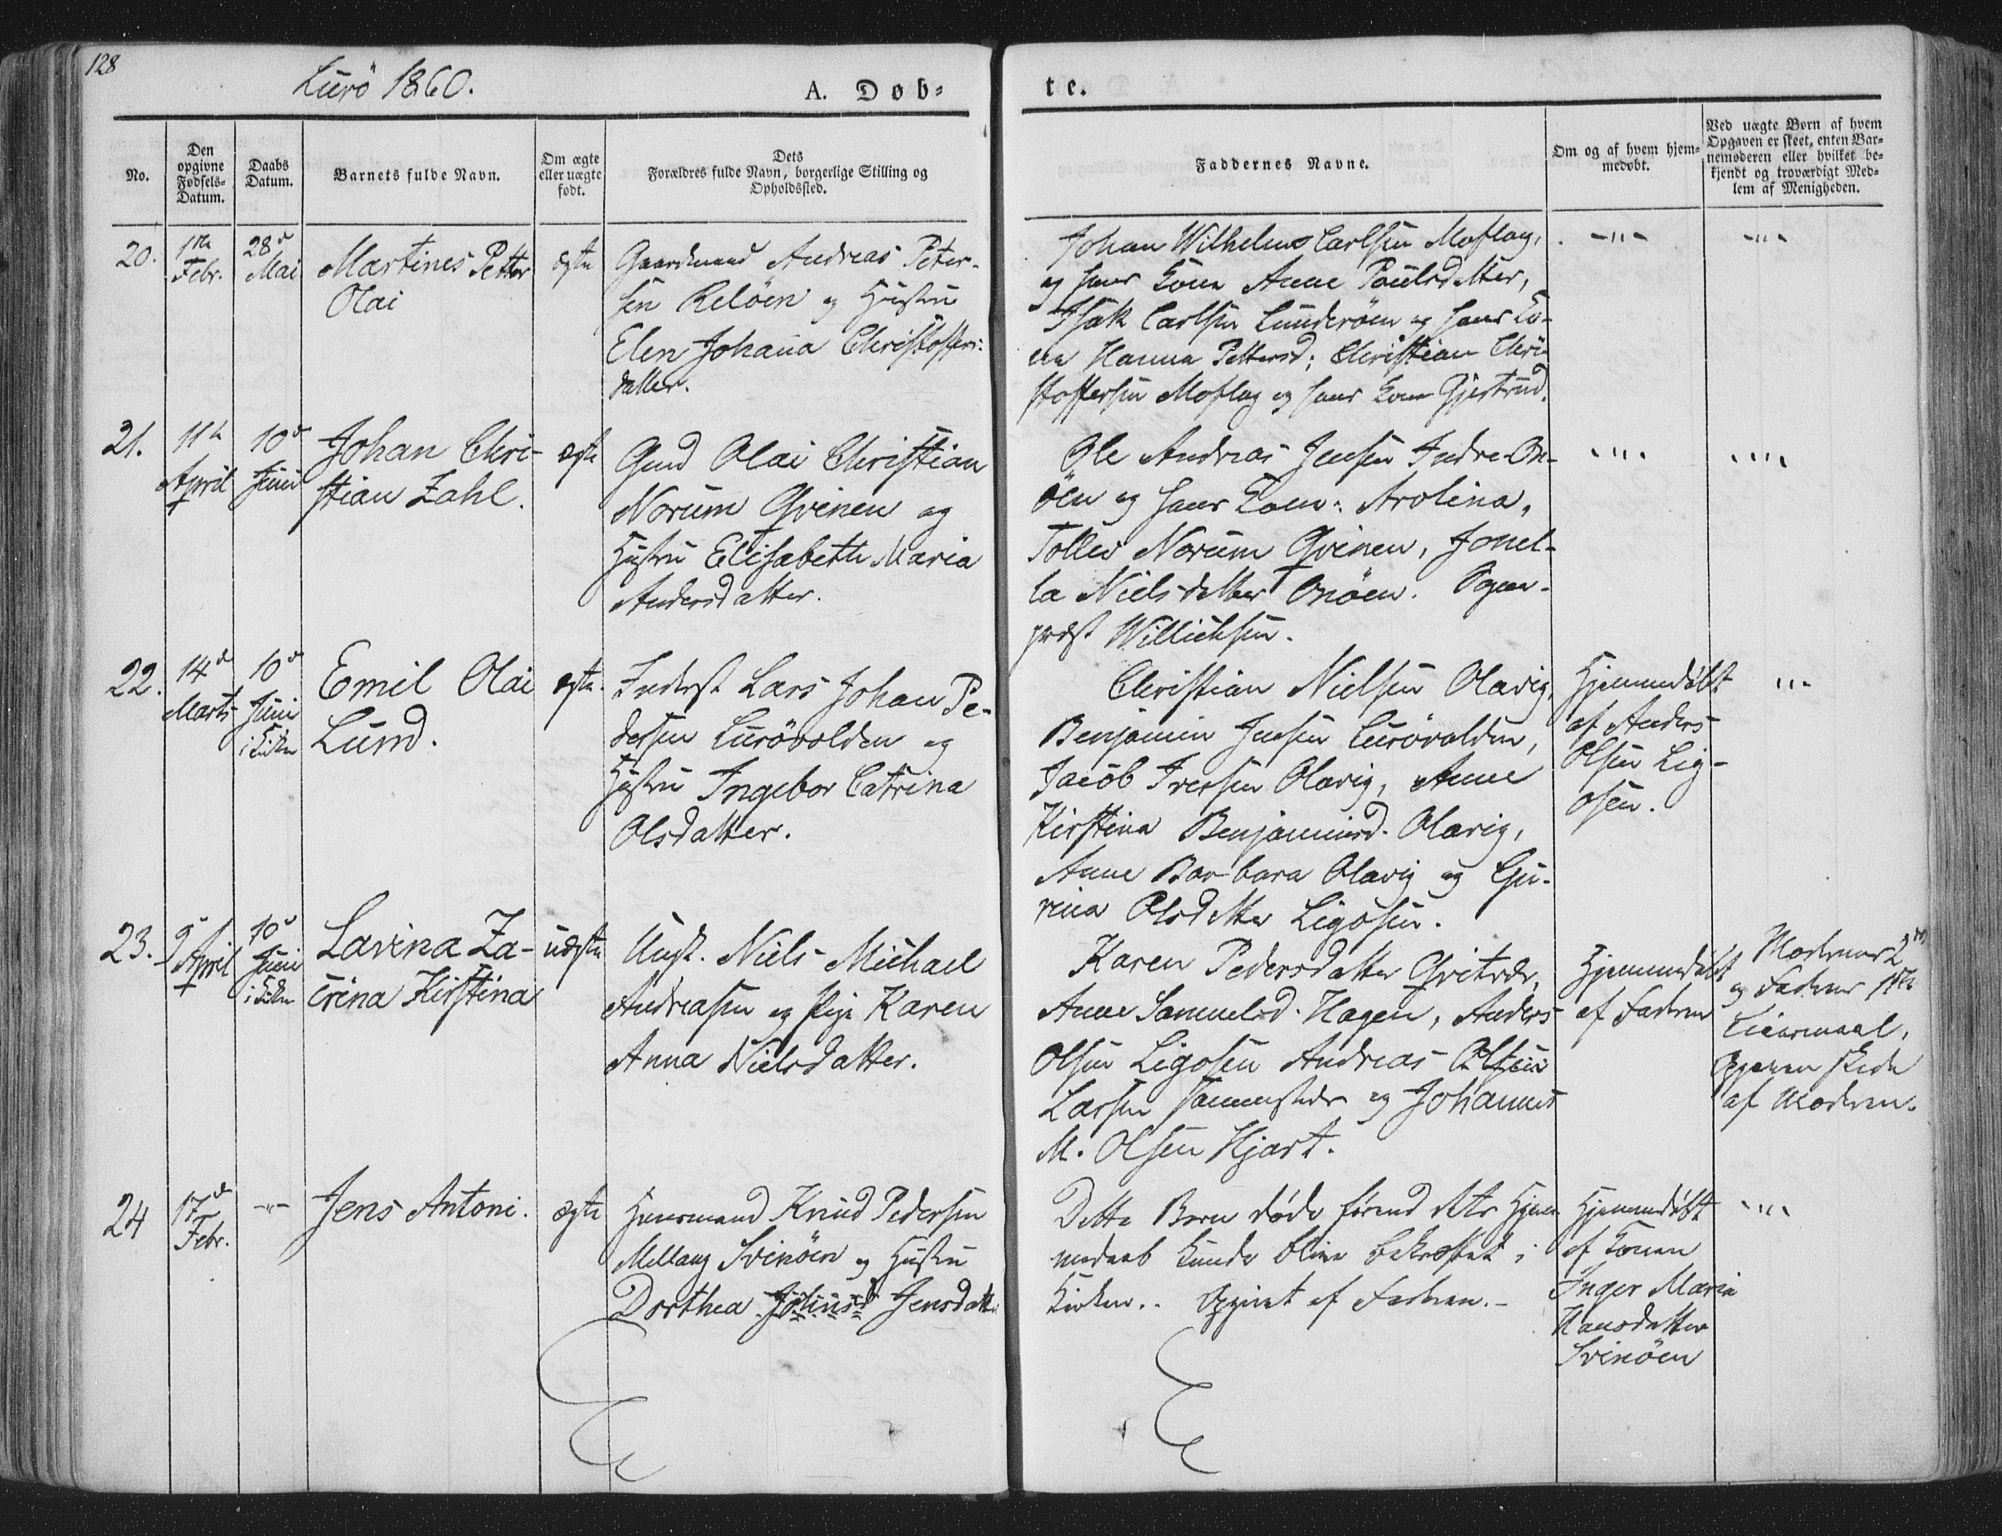 128
Lurö 1860.
A. Døb-
te.
No.
Den opgivne Fødsels-Datum.
Daabs Datum.
Barnets fulde Navn.
Om ægte eller uægte født.
Dets Forældres fulde Navn, borgerlige Stilling og Opholdssted.
Faddernes Navne.
Om og af hvem hjem-medøbt.
Ved uægte Børn af hvem Opgaven er skeet, enten Bar-nemoderen eller hvilket be-kjendt og troværdigt Med-lem af Menigheden.
20.
1ste Febr.
28d Mai
Martines Petter
Olai
ægte
Gaardmand Andreas Peter-
sen Relöen og Hustru
Elen Johana Christoffers-
datter.
Johan Wilhelms Carlsen Moflag,
og hans Kone Anne Paulsdatter,
Isak Carlsen Lunderöen og hans Ko-
ne Hanna Pettersd; Christian Chri-
stoffersen Moflag og hans Kone Gjertrud.
-"-
-"-
21.
11te April
10d Juni
Johan Chri-
stian Zahl.
ægte
Gmd Olai Christian
Norum Qvinen og
Hustru Elisabeth Maria
Andersdatter.
Ole Andreas Jensen Indre On-
öen og hans Kone: Arolina,
Tollev Norum Qvinen, Jonel-
la Nielsdatter Onöen. Sogne-
præst Willichsen.
"
"
22.
14d Marts
10d Juni i Kirken
Emil Olai
Lund.
ægte.
Inderst Lars Johan Pe-
dersen Lurövolden og
Hustru Ingebor Catrina
Olsdatter.
Christian Nielsen Olavig,
Benjamin Jensen Lurövolden,
Jacob Iversen Olavig, Anne
Kirstina Benjaminsd. Olavig,
Anne Barbara Olavig og Gu-
rina Olsdatter Ligosen.
Hjemmedøbt
af Anders
Olsen Lig-
osen.
"
23.
9d April
10d Juni i Kirken
Lavina Za-
crina Kirstina
uægte
Ungk. Niels Michael
Andreasen og Pige Karen
Anna Nielsdatter.
Karen Pedersdatter Qvitvær,
Anne Samuelsd. Hagen, Anders
Olsen Ligosen Andreas Olsen
Larsen og Johannes
M. Olsen Hjart.
Hjemmedøbt
af Faderen
Moderens 2det
og Faderens 1ste
Leiermaal,
Opgaven skede
af Moderen.
24
17d Febr.
-"-
Jens Antoni.
ægte
Huusmand Knud Pedersen
Mellang Svinöen og Hustru
Dorthea Johnsd Jensdatter
Dette Barn døde førend dets Hjem
medaab kunde blive bekræftet i
Kirken.. Opgivet af Faderen.-
Hjemmedøbt
af Konen
Inger Maria
Hansdatter
Svinöen
"